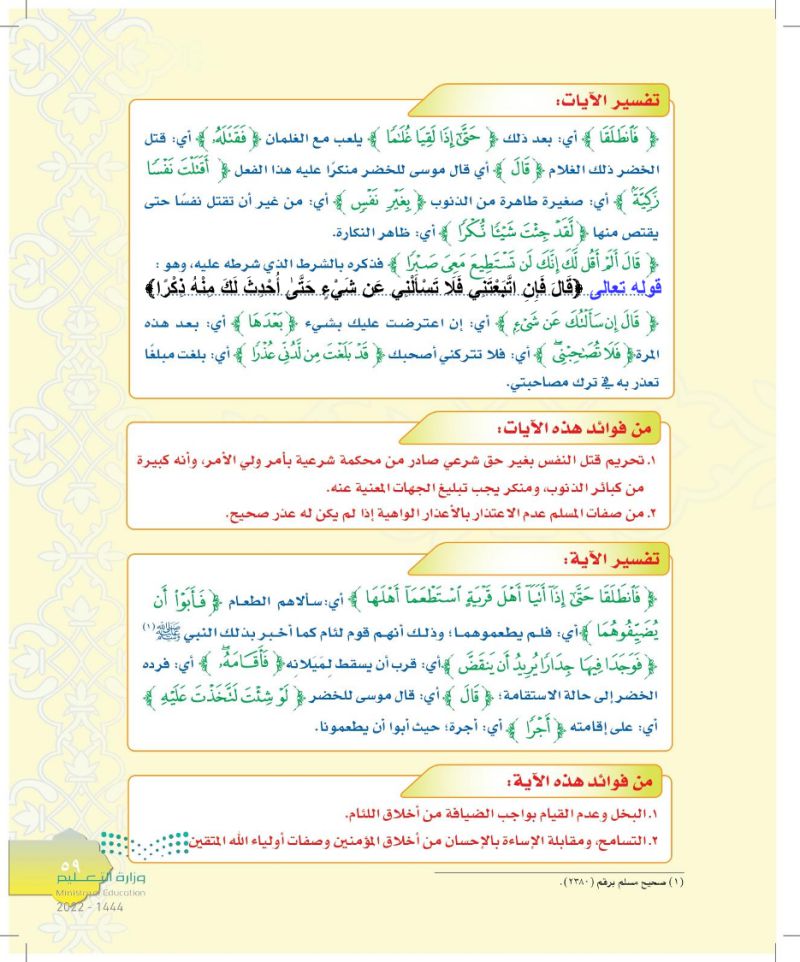 تفسير الآيات:
﴿ فَٱنطَلَقَا ﴾ أي: بعد ذلك ﴿ حَتَّىٰٓ إِذَا لَقِيَا غُلَٰمٗا ﴾ يلعب مع الغلمان ﴿ فَقَتَلَهُۥ ﴾ أي: قتل
الخضر ذلك الغلام ﴿ قَالَ ﴾ أي قال موسى للخضر منكرًا عليه هذا الفعل ﴿ أَقَتَلۡتَ نَفۡسٗا
زَكِيَّةَۢ ﴾ أي: صغيرة طاهرة من الذنوب ﴿ بِغَيۡرِ نَفۡسٖ ﴾ أي: من غير أن تقتل نفسًا حتى
يقتص منها ﴿ لَّقَدۡ جِئۡتَ شَيۡـٔٗا نُّكۡرٗا ﴾ أي: ظاهر النكارة.
﴿ قَالَ أَلَمۡ أَقُل لَّكَ إِنَّكَ لَن تَسۡتَطِيعَ مَعِيَ صَبۡرٗا ﴾ فذكره بالشرط الذي شرطه عليه، وهو :
قوله تعالى ﴿قَالَ فَإِنِ اتَّبَعْتَنِي فَلَا تَسْأَلْنِي عَن شَيْءٍ حَتَّىٰ أُحْدِثَ لَكَ مِنْهُ ذِكْرًا﴾
﴿ قَالَ إِن سَأَلۡتُكَ عَن شَيۡءِۭ ﴾ أي: إن اعترضت عليك بشيء ﴿ بَعۡدَهَا ﴾ أي: بعد هذه
المرة ﴿ فَلَا تُصَٰحِبۡنِيۖ ﴾ أي: فلا تتركني أصحبك ﴿ قَدۡ بَلَغۡتَ مِن لَّدُنِّي عُذۡرٗا ﴾ أي: بلغت مبلغًا
تعذر به في ترك مصاحبتي.
من فوائد هذه الآيات:
١. تحريم قتل النفس بغير حق شرعي صادر من محكمة شرعية بأمر ولي الأمر، وأنه كبيرة
من كبائر الذنوب، ومنكر يجب تبليغ الجهات المعنية عنه.
٢. من صفات المسلم عدم الاعتذار بالأعذار الواهية إذا لم يكن له عذر صحيح.
تفسير الآية:
﴿ فَٱنطَلَقَا حَتَّىٰٓ إِذَآ أَتَيَآ أَهۡلَ قَرۡيَةٍ ٱسۡتَطۡعَمَآ أَهۡلَهَا ﴾ أي:سألاهم الطعام ﴿ فَأَبَوۡاْ أَن
يُضَيِّفُوهُمَا ﴾ أي: فلم يطعموهما؛ وذلك أنهم قوم لئام كما أخبر بذلك النبي ﷺ(١)
﴿ فَوَجَدَا فِيهَا جِدَارٗا يُرِيدُ أَن يَنقَضَّ ﴾ أي: قرب أن يسقط لِمَيَلانِه ﴿ فَأَقَامَهُۥۖ ﴾ أي: فرده
الخضر إلى حالة الاستقامة؛ ﴿ قَالَ ﴾ أي: قال موسى للخضر ﴿ لَوۡ شِئۡتَ لَتَّخَذۡتَ عَلَيۡهِ ﴾
أي: على إقامته ﴿ أَجۡرٗا ﴾ أي: أجرة؛ حيث أبوا أن يطعمونا.
من فوائد هذه الآية:
١. البخل وعدم القيام بواجب الضيافة من أخلاق اللئام.
٢. التسامح، ومقابلة الإساءة بالإحسان من أخلاق المؤمنين وصفات أولياء الله المتقين
(١) صحيح مسلم برقم (٢٣٨٠).
٥٩
وزارة التعليم
Ministry of Education
2022 - 1444